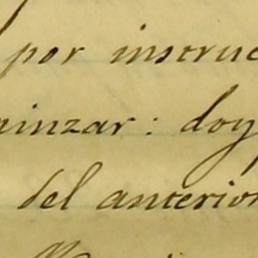 por instruc
inzar: doy
del anterior